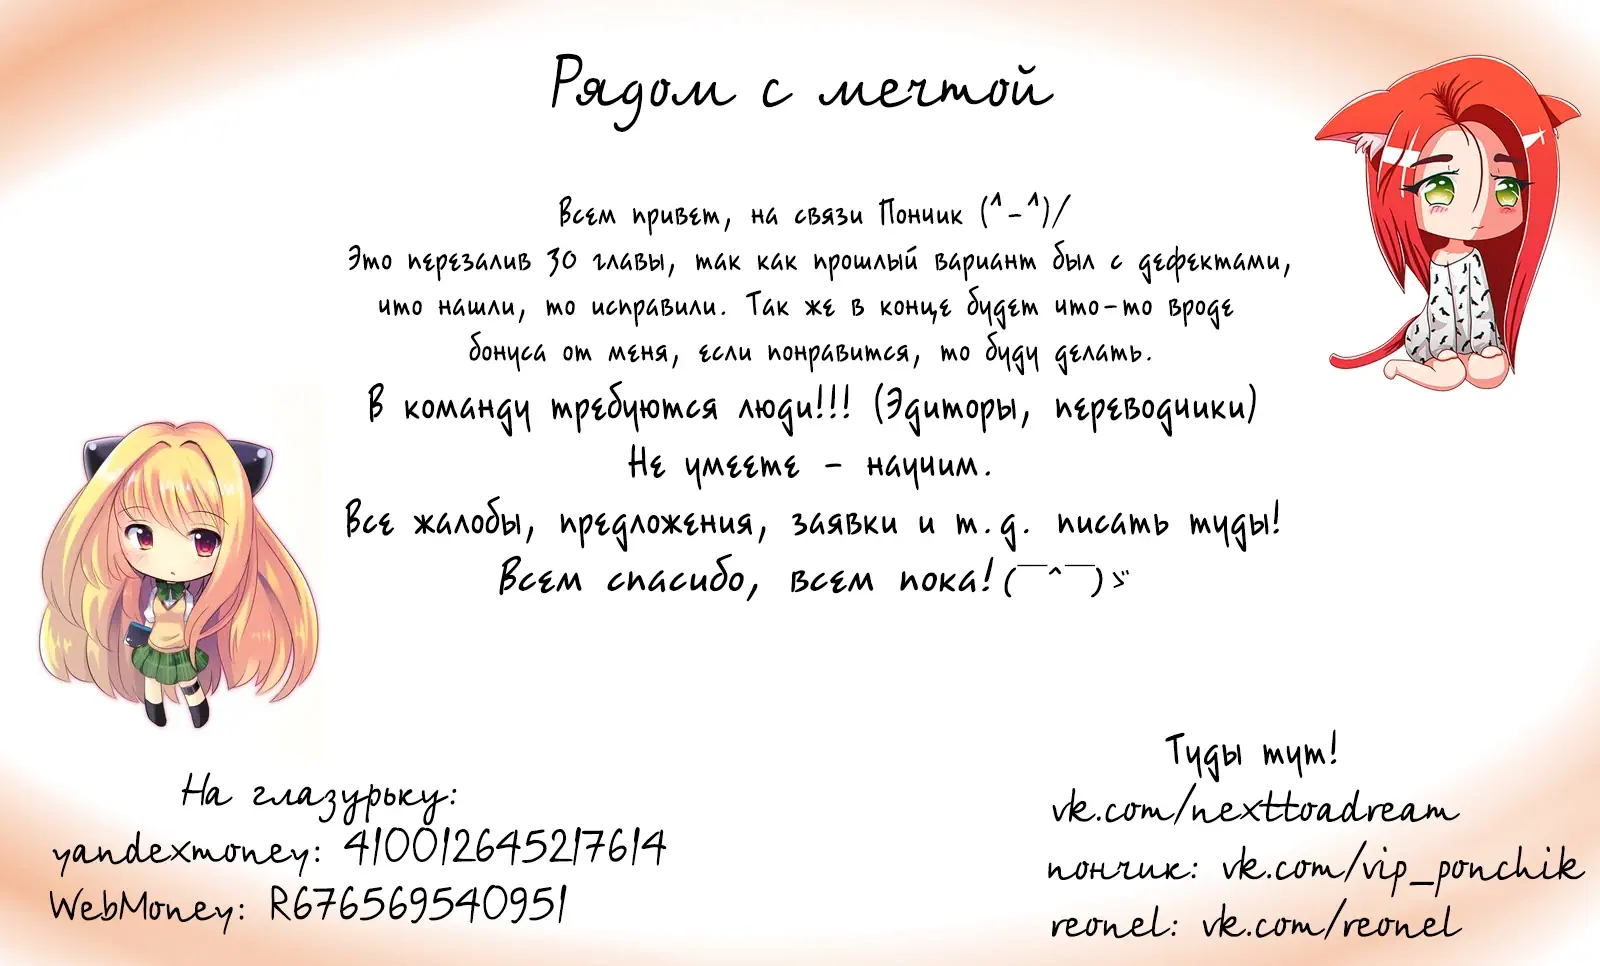 Рядом с мечтой
Всем привет, на связи Пончик (^-^)/
Это перезалив 30 главы, так как прошлый вариант был с дефектами,
что нашли, то исправили. Так же в конце будет что-то вроде
бонуса от меня, если понравится, то буду делать.
В команду требуются люди!!! (Эдиторы, переводчики)
Не умеете - научим.
Все жалобы, предложения, заявки и т.д. писать туды!
Всем спасибо, всем пока!(￣^￣)ゞ
На глазурьку:
yandexmoney: 410012645217614
WebMoney: R676569540951
Туды тут!
vk.com/nexttoadream
пончик: vk.com/vip_ponchik
reonel: vk.com/reonel